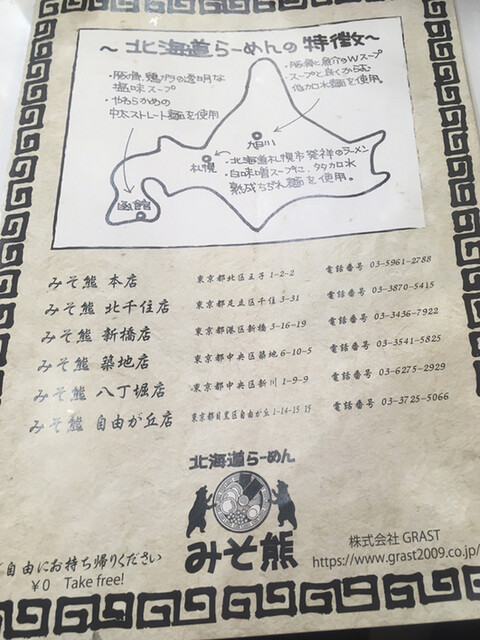 〜北海道らーめんの特徴〜
・豚骨、鶏ガラの透明な
塩味スープ
・やわらかめの
中太ストレート麺を使用
・豚骨と魚介のWスープ
・スープと良くからむ
低カロ水麺を使用
旭川
札幌
・北海道札幌市発祥のラーメン
・白味噌スープに、タタカロ水
熟成ちぢれ麺を使用。
函館
みそ熊 本店 東京都北区王子 1-2-2 電話番号 03-5961-2788
みそ熊 北千住店 東京都足立区千住 3-31 電話番号 03-3870-5415
みそ熊 新橋店 東京都港区新橋 3-16-19 電話番号 03-3436-7922
みそ熊 築地店 東京都中央区築地 6-10-5 電話番号 03-3541-5825
みそ熊 八丁堀店 東京都中央区新川 1-9-9 電話番号 03-6275-2929
みそ熊 自由が丘店 東京都目黒区自由が丘 1-14-15 15 電話番号 03-3725-5066
北海道らーめん
みそ熊
自由にお持ち帰りください
¥0 Take free!
株式会社 GRAST
https://www.grast2009.co.jp/